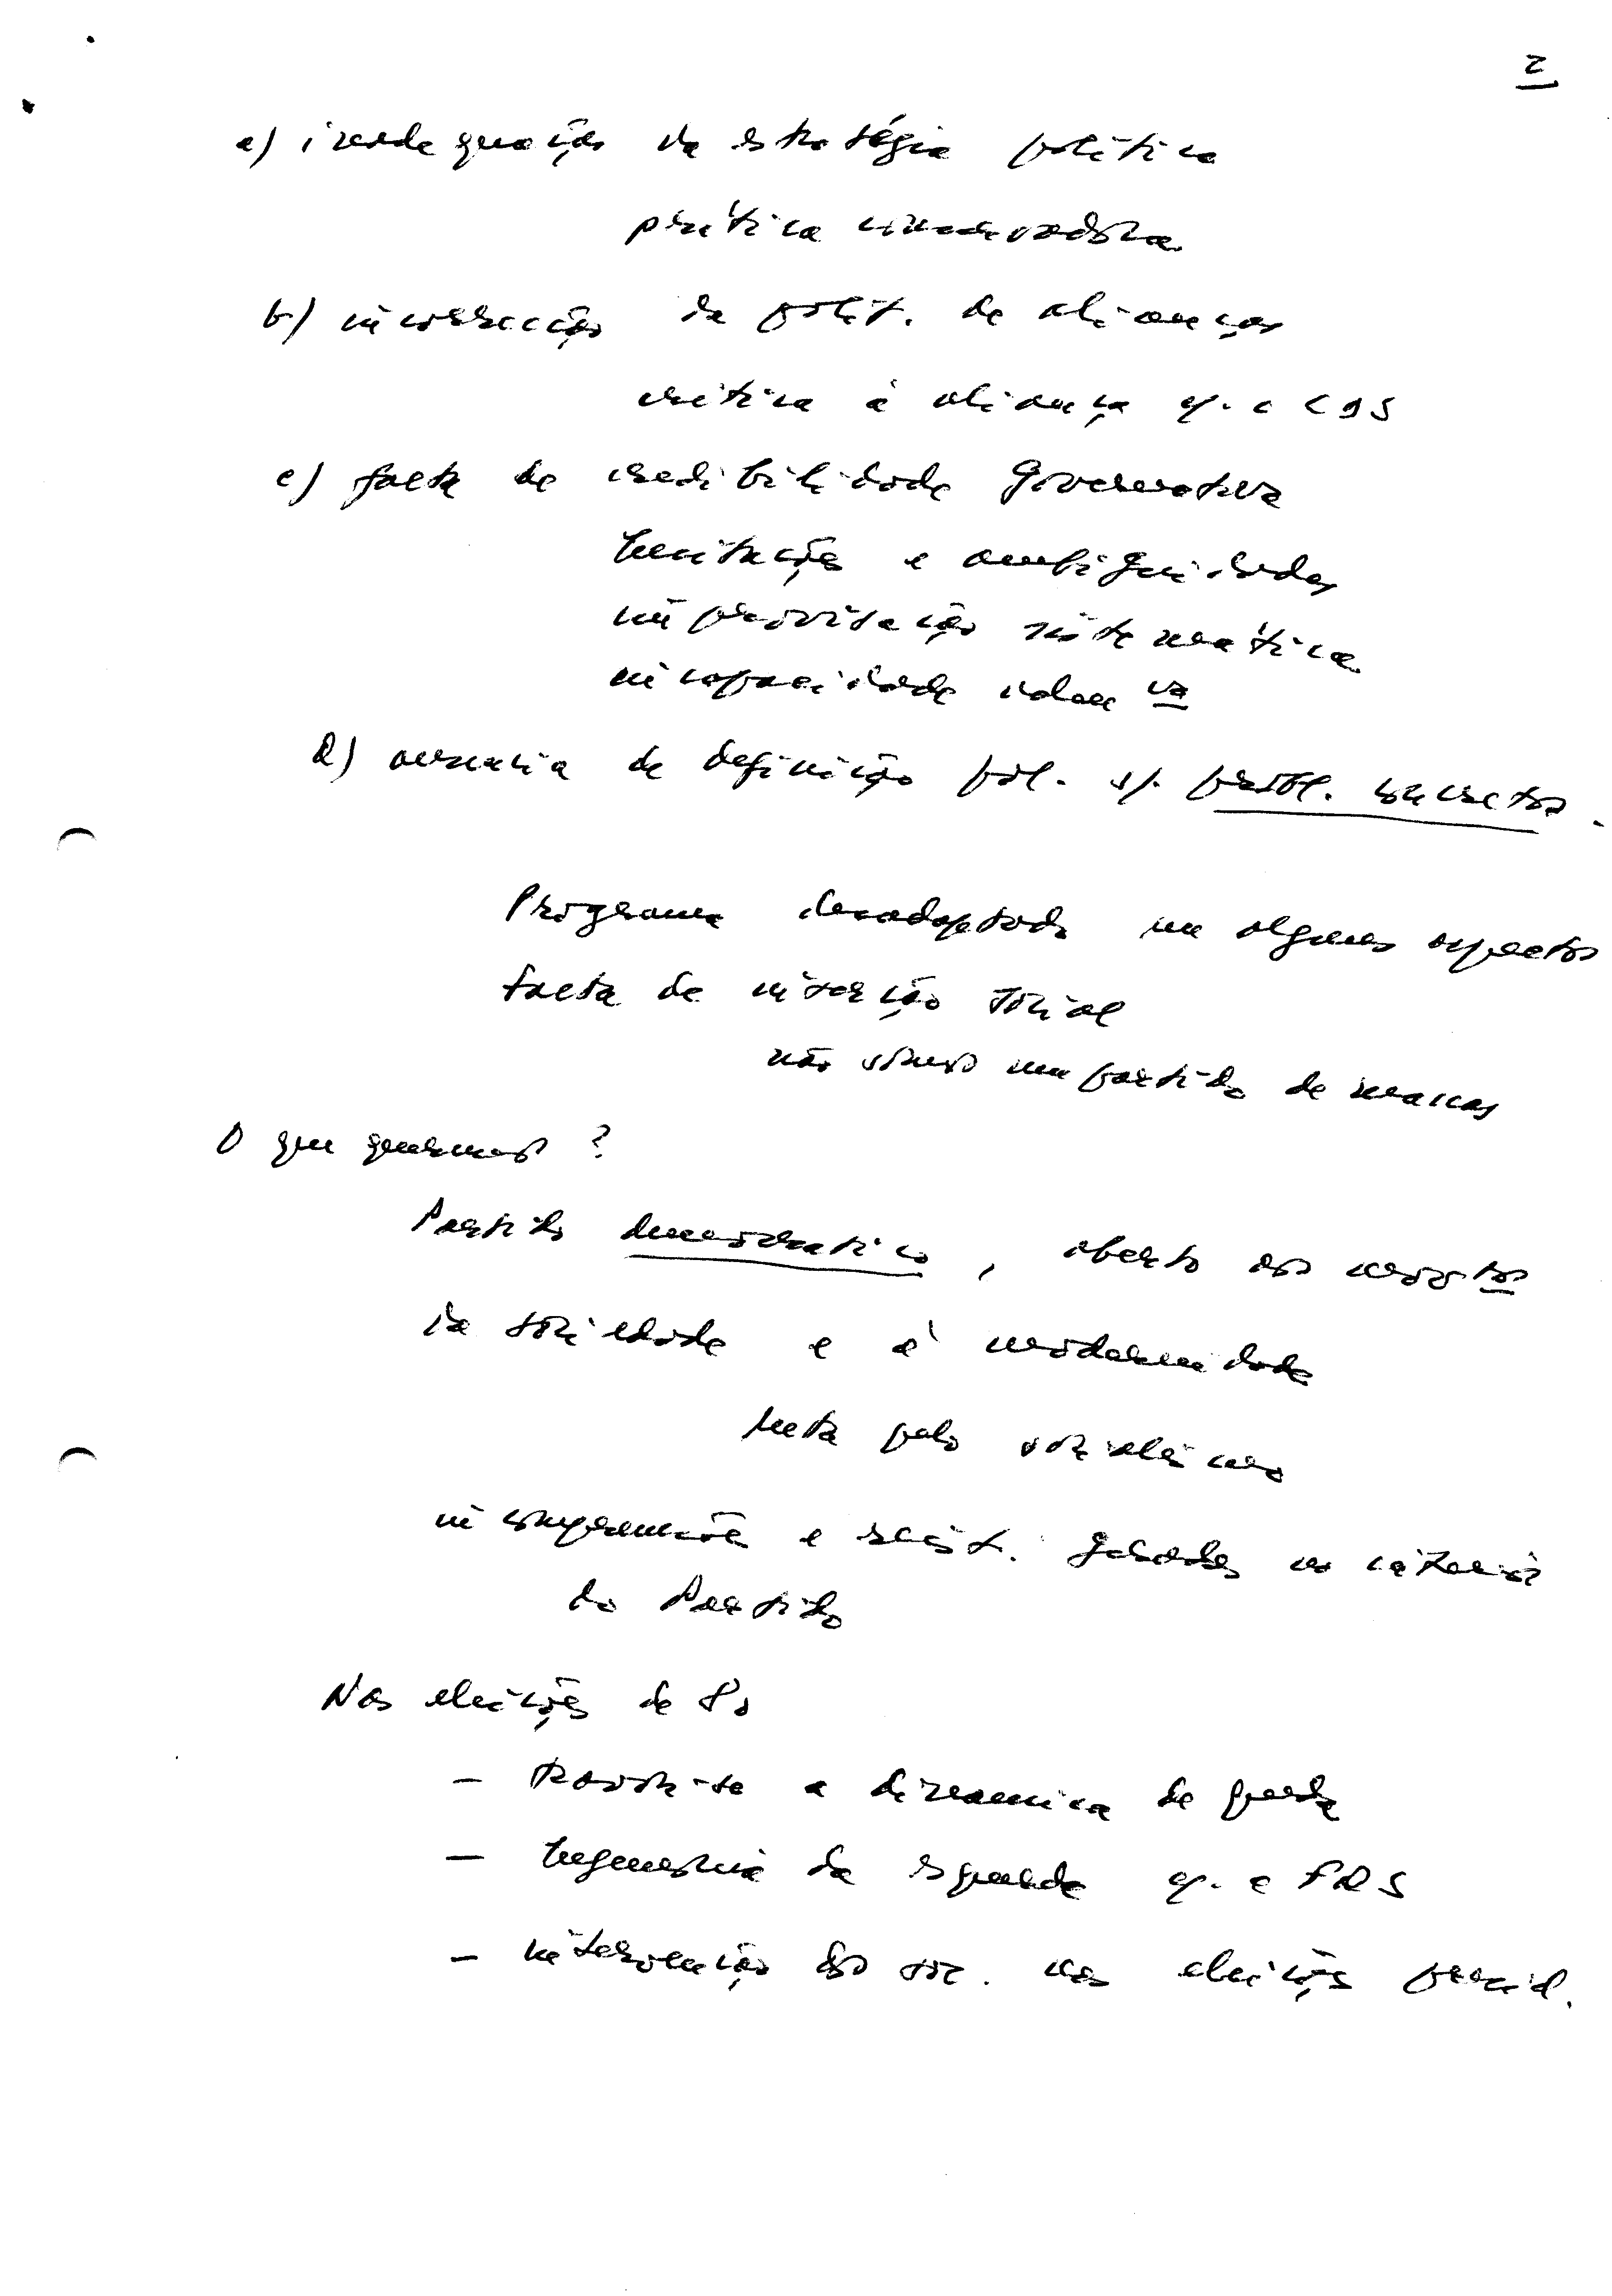 2
a) inadequação da estratégia política
prática conservadora
b) incorrecção da polít. de alianças
crítica à aliança c/. o CDS
c) falta de credibilidade governativa
hesitações e ambiguidades
improvisação sistemática
incapacidade
d) ausência de definição pol. s/. probl. concretos.
Programa desadaptado em alguns aspectos
falta de inserção social
não somos um partido de massas
O que queremos?
Partido democrático, aberto aos
da sociedade e à modernidade
luta pelo socialismo
incompreensões e resist. geradas no interior
do Partido
Nas eleições de 80
- a dinâmica de perda
- hegemonia da esquerda c/. a FRS
- intervenção dos soc. nas eleições presid.